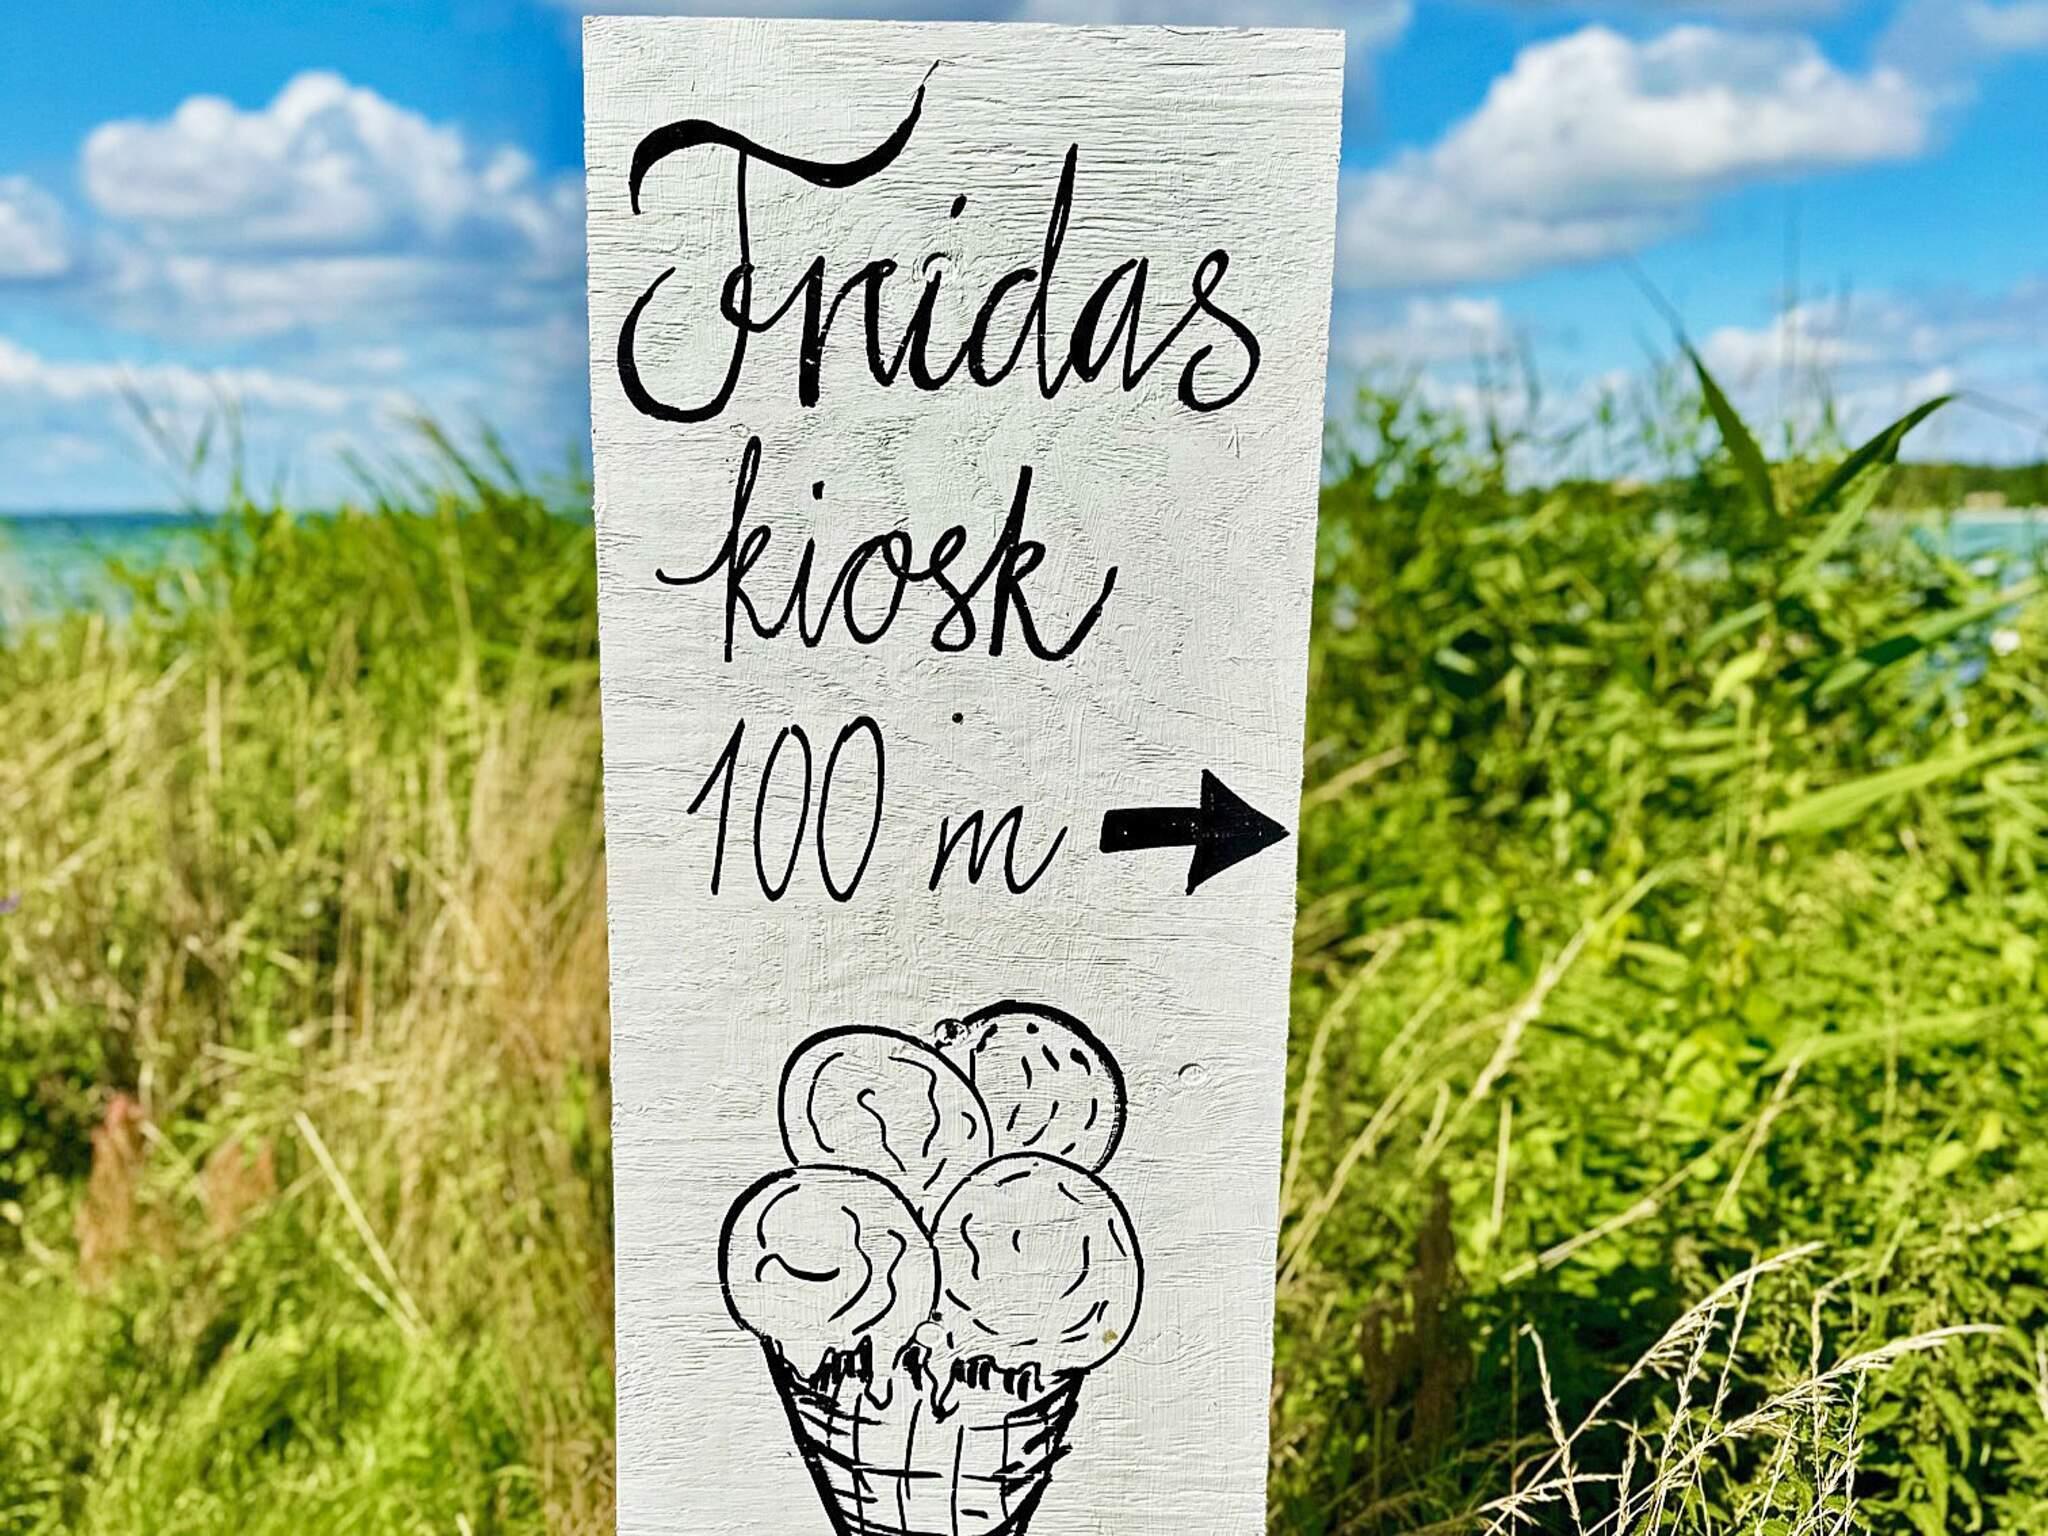 Fridas
kiosk
100 m →